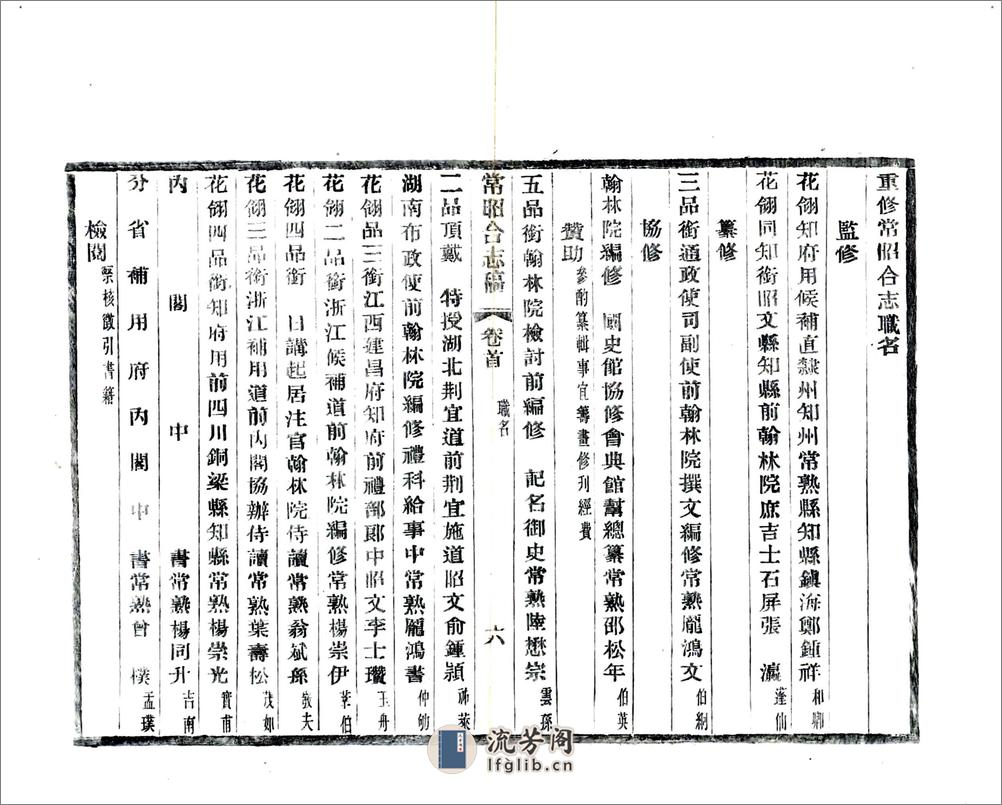 重修常昭合志職名
監修
花翎知府用候補直隸州知州常熟縣知縣鎮海鄭鍾祥
花翎同知銜昭文縣知縣前翰林院庶吉士石屏張瀛 蓬仙
纂修
三品銜通政使司副使前翰林院撰文編修常熟龐鴻文 伯絅
協修
翰林院編修 國史館協修會典館幫總纂常熟邵松年 伯英
贊助 參酌纂輯事宜籌畫修刊經費
五品銜翰林院檢討前編修 記名御史常熟陸懋宗 雲孫
常昭合志稿 卷首 職名 六
二品頂戴 特授湖北荆宜道前荆宜施道昭文俞鍾頴 萊
湖南布政使前翰林院編修禮科給事中常熟龐鴻書
花翎三品銜江西建昌府知府前禮部郎中昭文李士瓚 玉舟
花翎二品銜浙江候補道前翰林院編修常熟楊崇伊 莘伯
花翎四品銜 日講起居注官翰林院侍讀常熟翁斌孫 弢夫
花翎三品銜浙江補用道前內閣協辦侍讀常熟葉壽松 茂如
花翎四品銜知府用前四川銅梁縣知縣常熟楊崇光 寶甫
內閣中書常熟楊同升 吉南
分省補用府內閣中書常熟曾樸 孟璞
檢閱 繫核徵引書籍
流芳阁
lfglib.cn